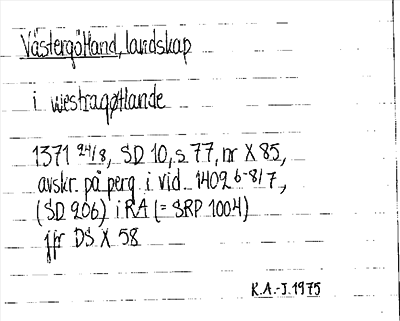 Västergötland, landskap
i westragøtlande
1371 24/8, SD 10, s 77, nr X 85,
avskr. på perg. i vid. 1402 6-8/7,
(SD 206) i RA (= SRP 1004)
jfr DS X 58
K.A.-J. 1975